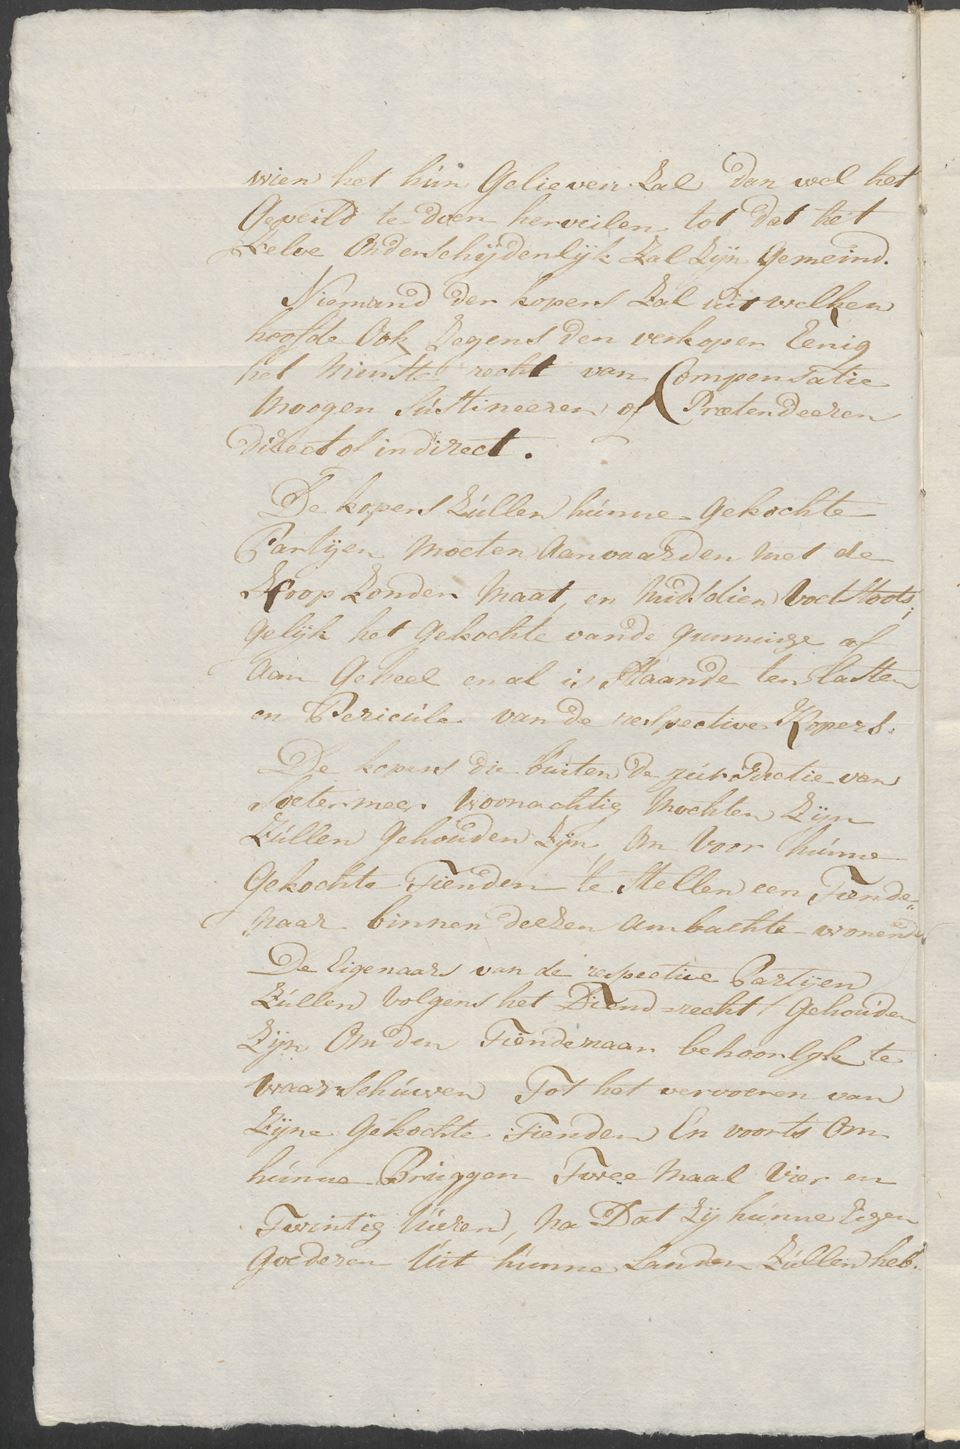 wien het hún Gelieven Zal dan wel het
Geveild te doen herveilen tot dat het
Zelve Onderschijdenlijk Zal Zijn Gemeind.
Niemand der kopers Zal uit welken
hoofde Ook Jegens den verkoper Eenig
het Minste recht van Compensatie
Moogen Sústineeren of Prætendeeren
direct of indirect.
De kopers Zúllen húnne Gekochte
Partijen Moeten Aanvaarden met de
Hoop Zonder Maat, en Midsdien Voetstoots,
gelijk het Gekochte van de gunninge af
Aan Geheel en al is Staande ten Lasten
en Pericúle van de respective Kopers.
De kopers die búiten de júrisdictie van
Soetermeer Woonachtig Mochten Zijn
Zúllen Gehoúden Zijn Om Voor húnne
Gekochte Tienden te Stellen een Tiende„
„naar binnen deezen Ambachte wonende
De Eigenaars van de respective Partijen
Zúllen Volgens het Tiend-recht Gehoúden
Zijn Om den Tiendenaar behoorlijk te
Waarschúwen Tot het vervoeren van
Zijne Gekochte Tienden En voorts Om
húnne Brúggen Twee Maal Vier en
Twintig Uúren, Na Dat Zij húnne Eigen
Goederen Uit húnne Landen Zúllen heb.